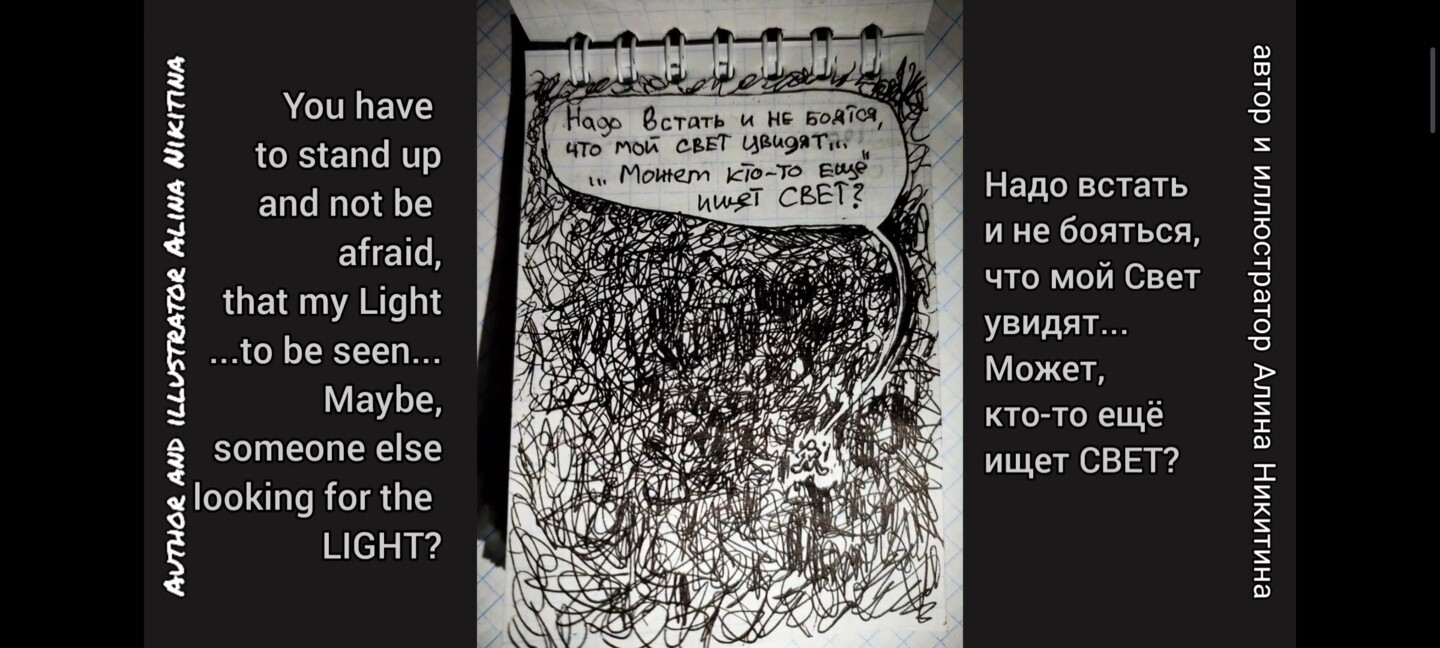 AUTHOR AND ILLUSTRATOR ALINA NIKITINA
You have
to stand up
and not be
afraid,
that my Light
...to be seen...
Maybe,
someone else
looking for the
LIGHT?
Надо встать и НЕ БОЯТСЯ,
что мой СВЕТ увидят...
... Может кто-то ещё
ищет СВЕТ?
Надо встать
и не бояться,
что мой Свет
увидят...
Может,
кто-то ещё
ищет СВЕТ?
автор и иллюстратор Алина Никитина